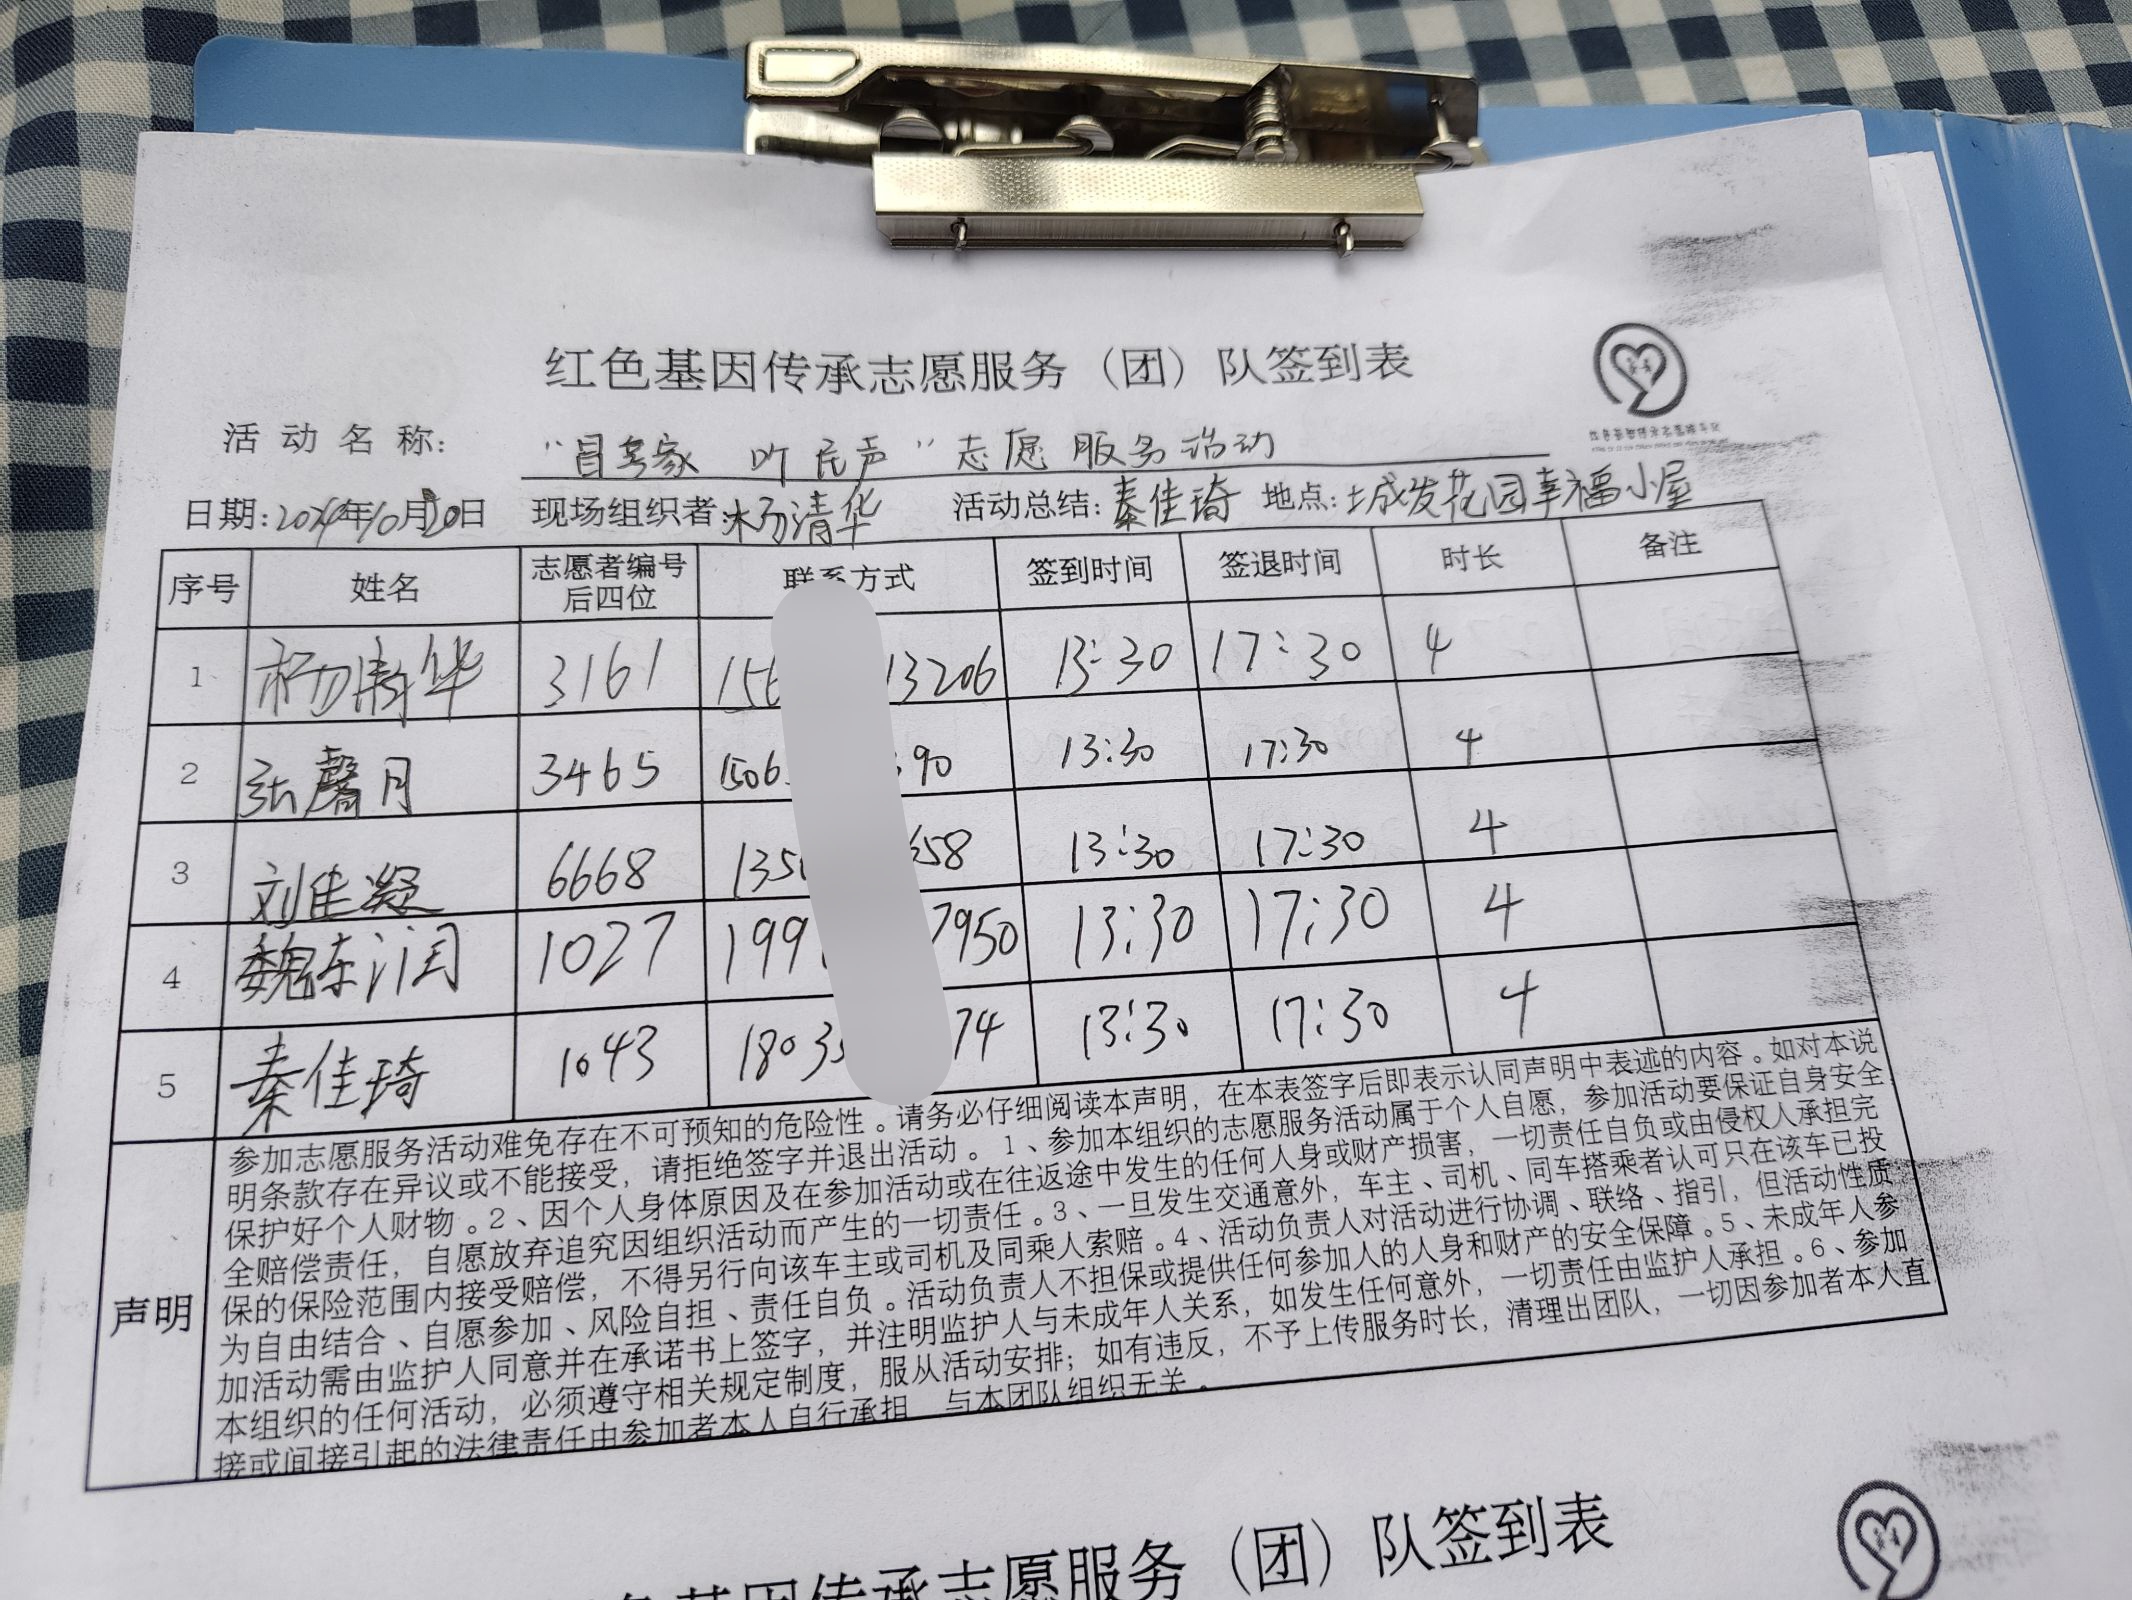 红色基因传承志愿服务（团）队签到表
活动名称: “冒号家 听民声”志愿服务活动
日期:2024年10月20日 现场组织者:杨清华 活动总结:秦佳琦 地点:城发花园幸福小屋
序号 姓名 志愿者编号后四位 联系方式 签到时间 签退时间 时长 备注
1 杨清华 3161 156 13206 13:30 17:30 4
2 张馨月 3465 1506 90 13:30 17:30 4
3 刘佳凝 6668 135 58 13:30 17:30 4
4 魏东润 1027 199 7950 13:30 17:30 4
5 秦佳琦 1043 1803 74 13:30 17:30 4
声明
参加志愿服务活动难免存在不可预知的危险性。请务必仔细阅读本声明，在本表签字后即表示认同声明中表述的内容。如对本说
明条款存在异议或不能接受，请拒绝签字并退出活动。1、参加本组织的志愿服务活动属于个人自愿，参加活动要保证自身安全
保护好个人财物。2、因个人身体原因及在参加活动或在往返途中发生的任何人身或财产损害，一切责任自负或由侵权人承担完
全赔偿责任，自愿放弃追究因组织活动而产生的一切责任。3、一旦发生交通意外，车主、司机、同车搭乘者认可只在该车已投
保的保险范围内接受赔偿，不得另行向该车主或司机及同乘人索赔。4、活动负责人对活动进行协调、联络、指引，但活动性质
为自由结合、自愿参加、风险自担、责任自负。活动负责人不担保或提供任何参加人的人身和财产的安全保障。5、未成年人参
加活动需由监护人同意并在承诺书上签字，并注明监护人与未成年人关系，如发生任何意外，一切责任由监护人承担。6、参加
本组织的任何活动，必须遵守相关规定制度，服从活动安排；如有违反，不予上传服务时长，清理出团队，一切因参加者本人直
接或间接引起的法律责任由参加者本人自行承担，与本团队组织无关。
色基因传承志愿服务（团）队签到表